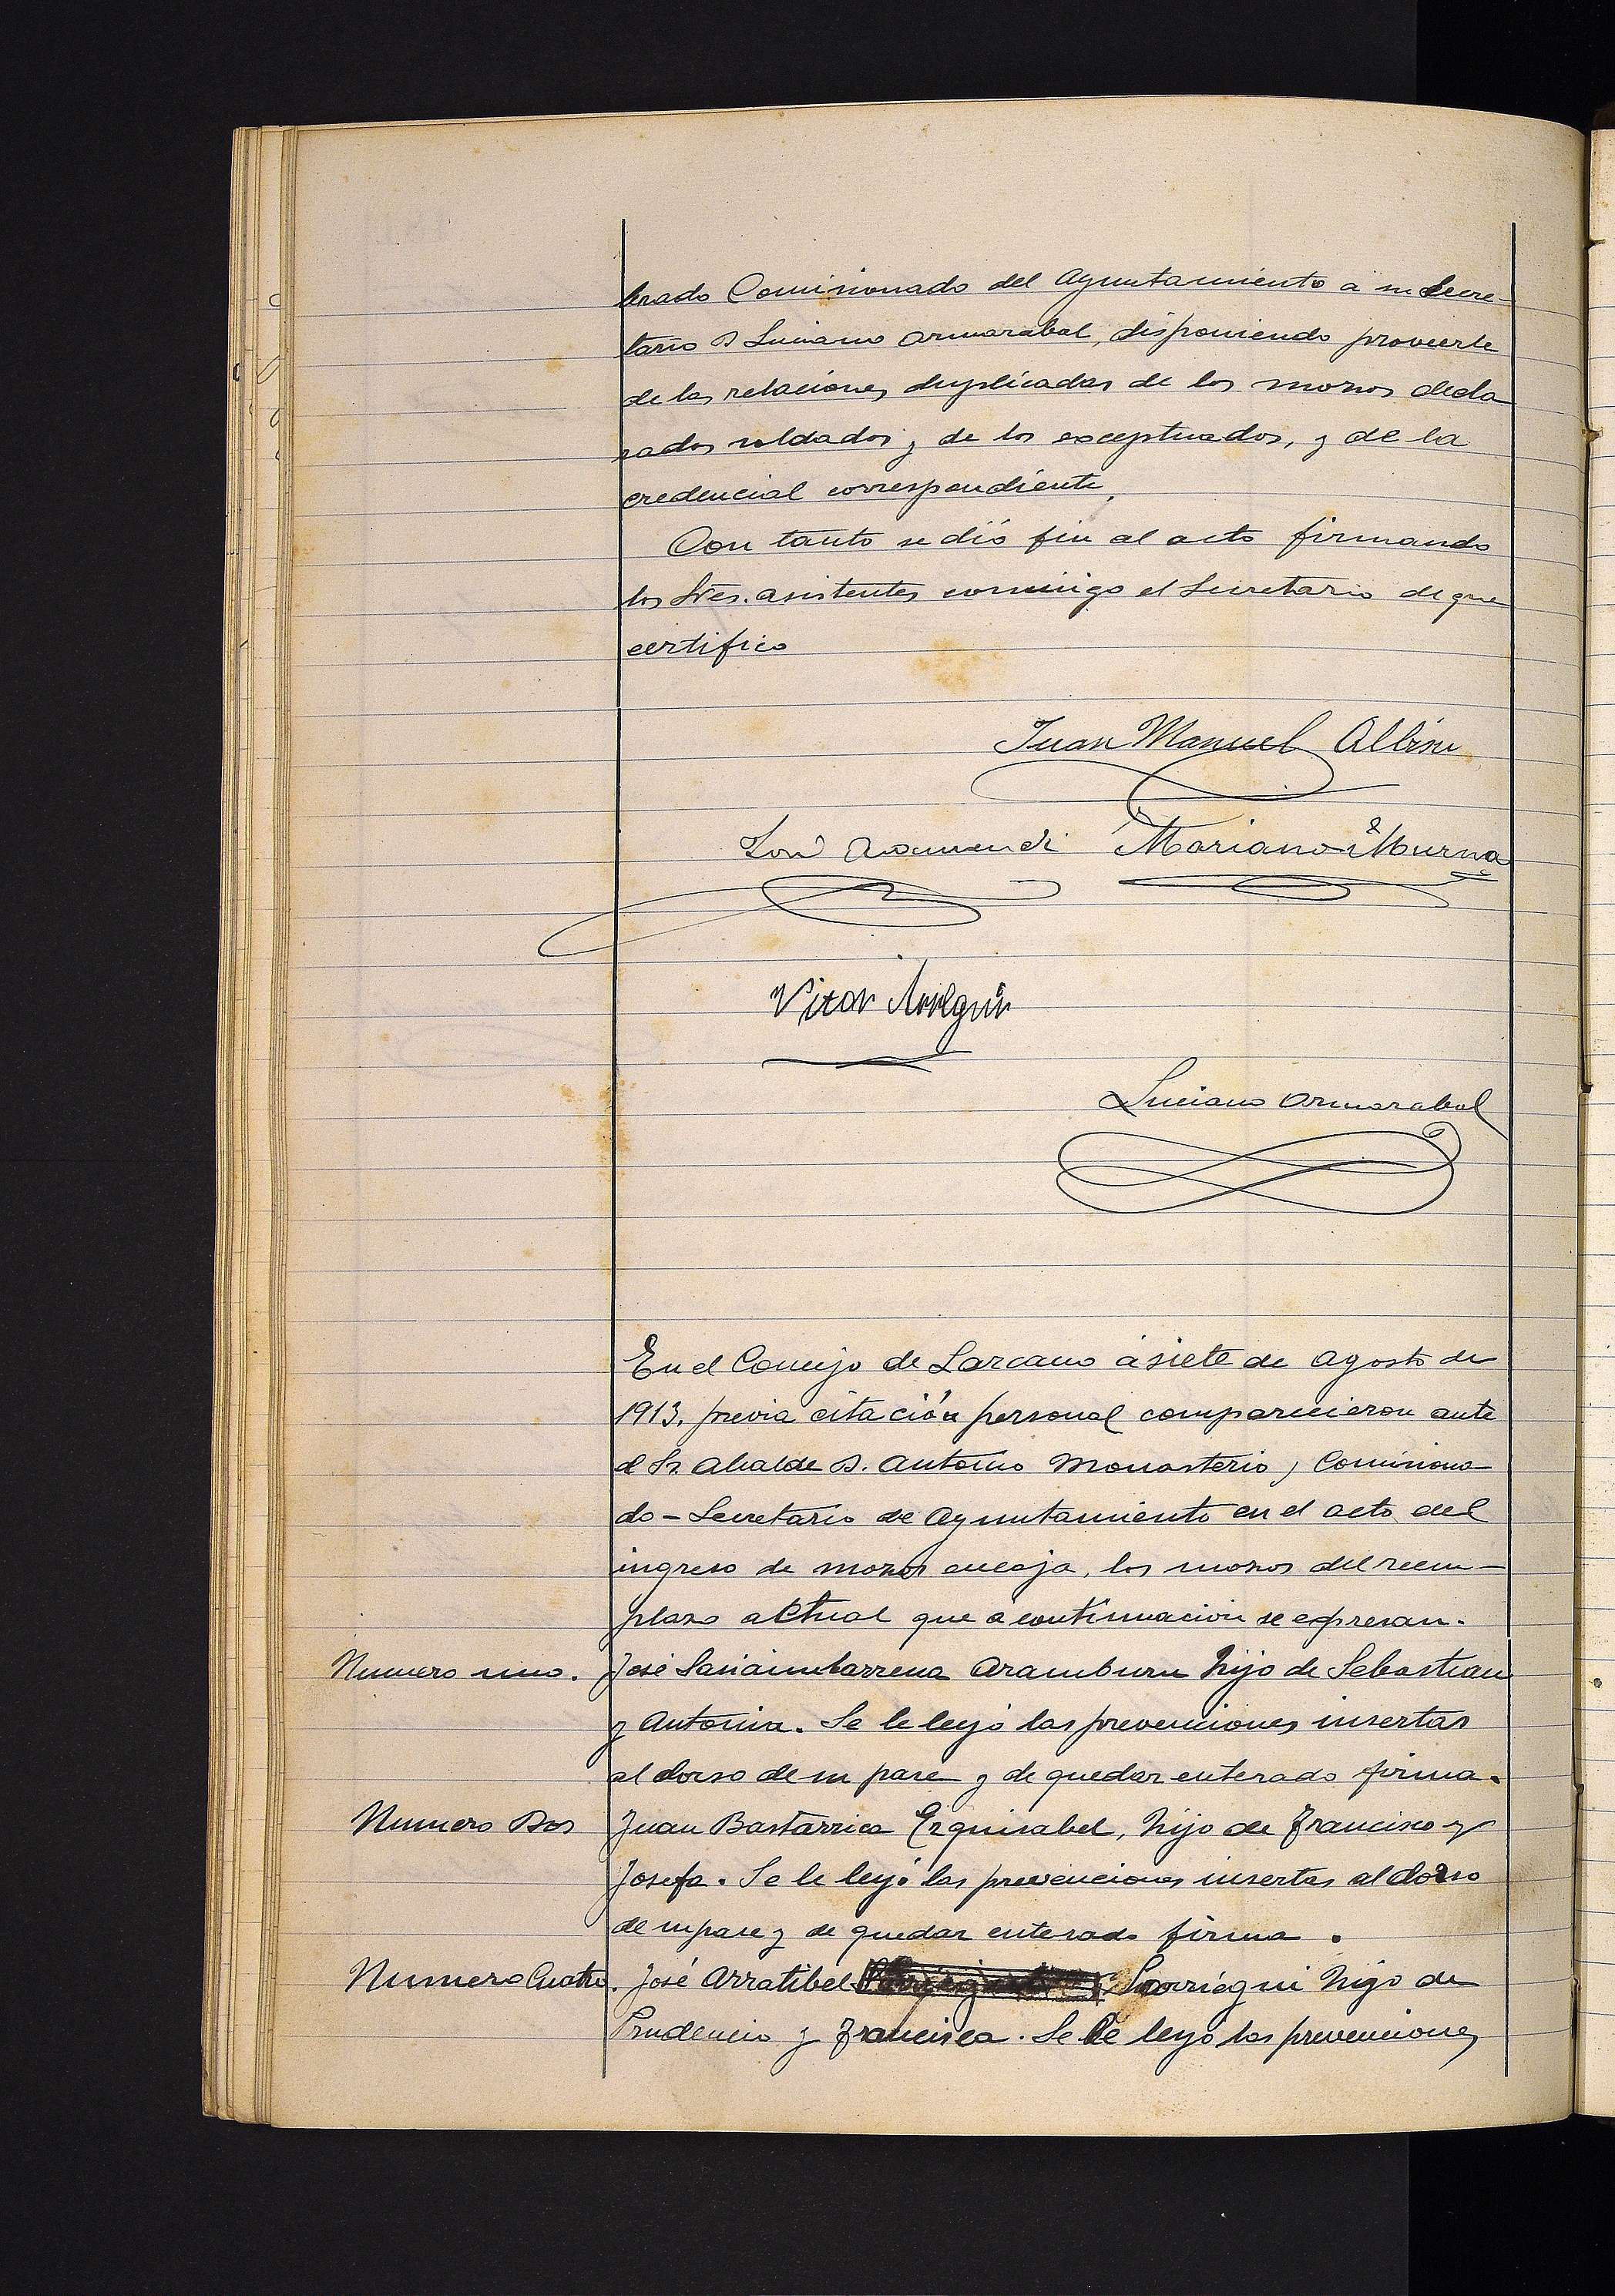 brado Comisionado del Ayuntamiento a su Secre-
tario D Luciano Ormazabal, disponiendo proveerle
de las relaciones duplicadas de los mozos decla
rados soldados y de los exceptuados, y de la
credencial correspondiente.
Con tanto se dió fin al acto firmando
los Sres. asistentes conmigo el Secretario de que
certifico
Juan Manuel Albisu
José Mariano Murua
Vitor
Luciano Ormazabal
En el Concejo de Lazcano á siete de Agosto de
1913, previa citación personal comparecieron ante
el Sr. Alcalde D. Antonio Monasterio, Comisiona-
do - Secretario de Ayuntamiento en el acto del
ingreso de mozos en caja, los mozos del reem-
plazo actual que á continuacion se expresan.
Numero uno. José Aramburu hijo de Sebastian
y Antonia. Se le leyó las prevenciones insertas
al dorso de su pase y de quedar enterado firma.
Numero Dos Juan Bastarrica Erquisabel, hijo de Francisco y
Josefa. Se le leyó las prevenciones insertas al dorso
de su pase y de quedar enterado firma.
Numero Cuatro. José Arratibel hijo de
Prudencio y Francisca. Se le leyó las prevenciones